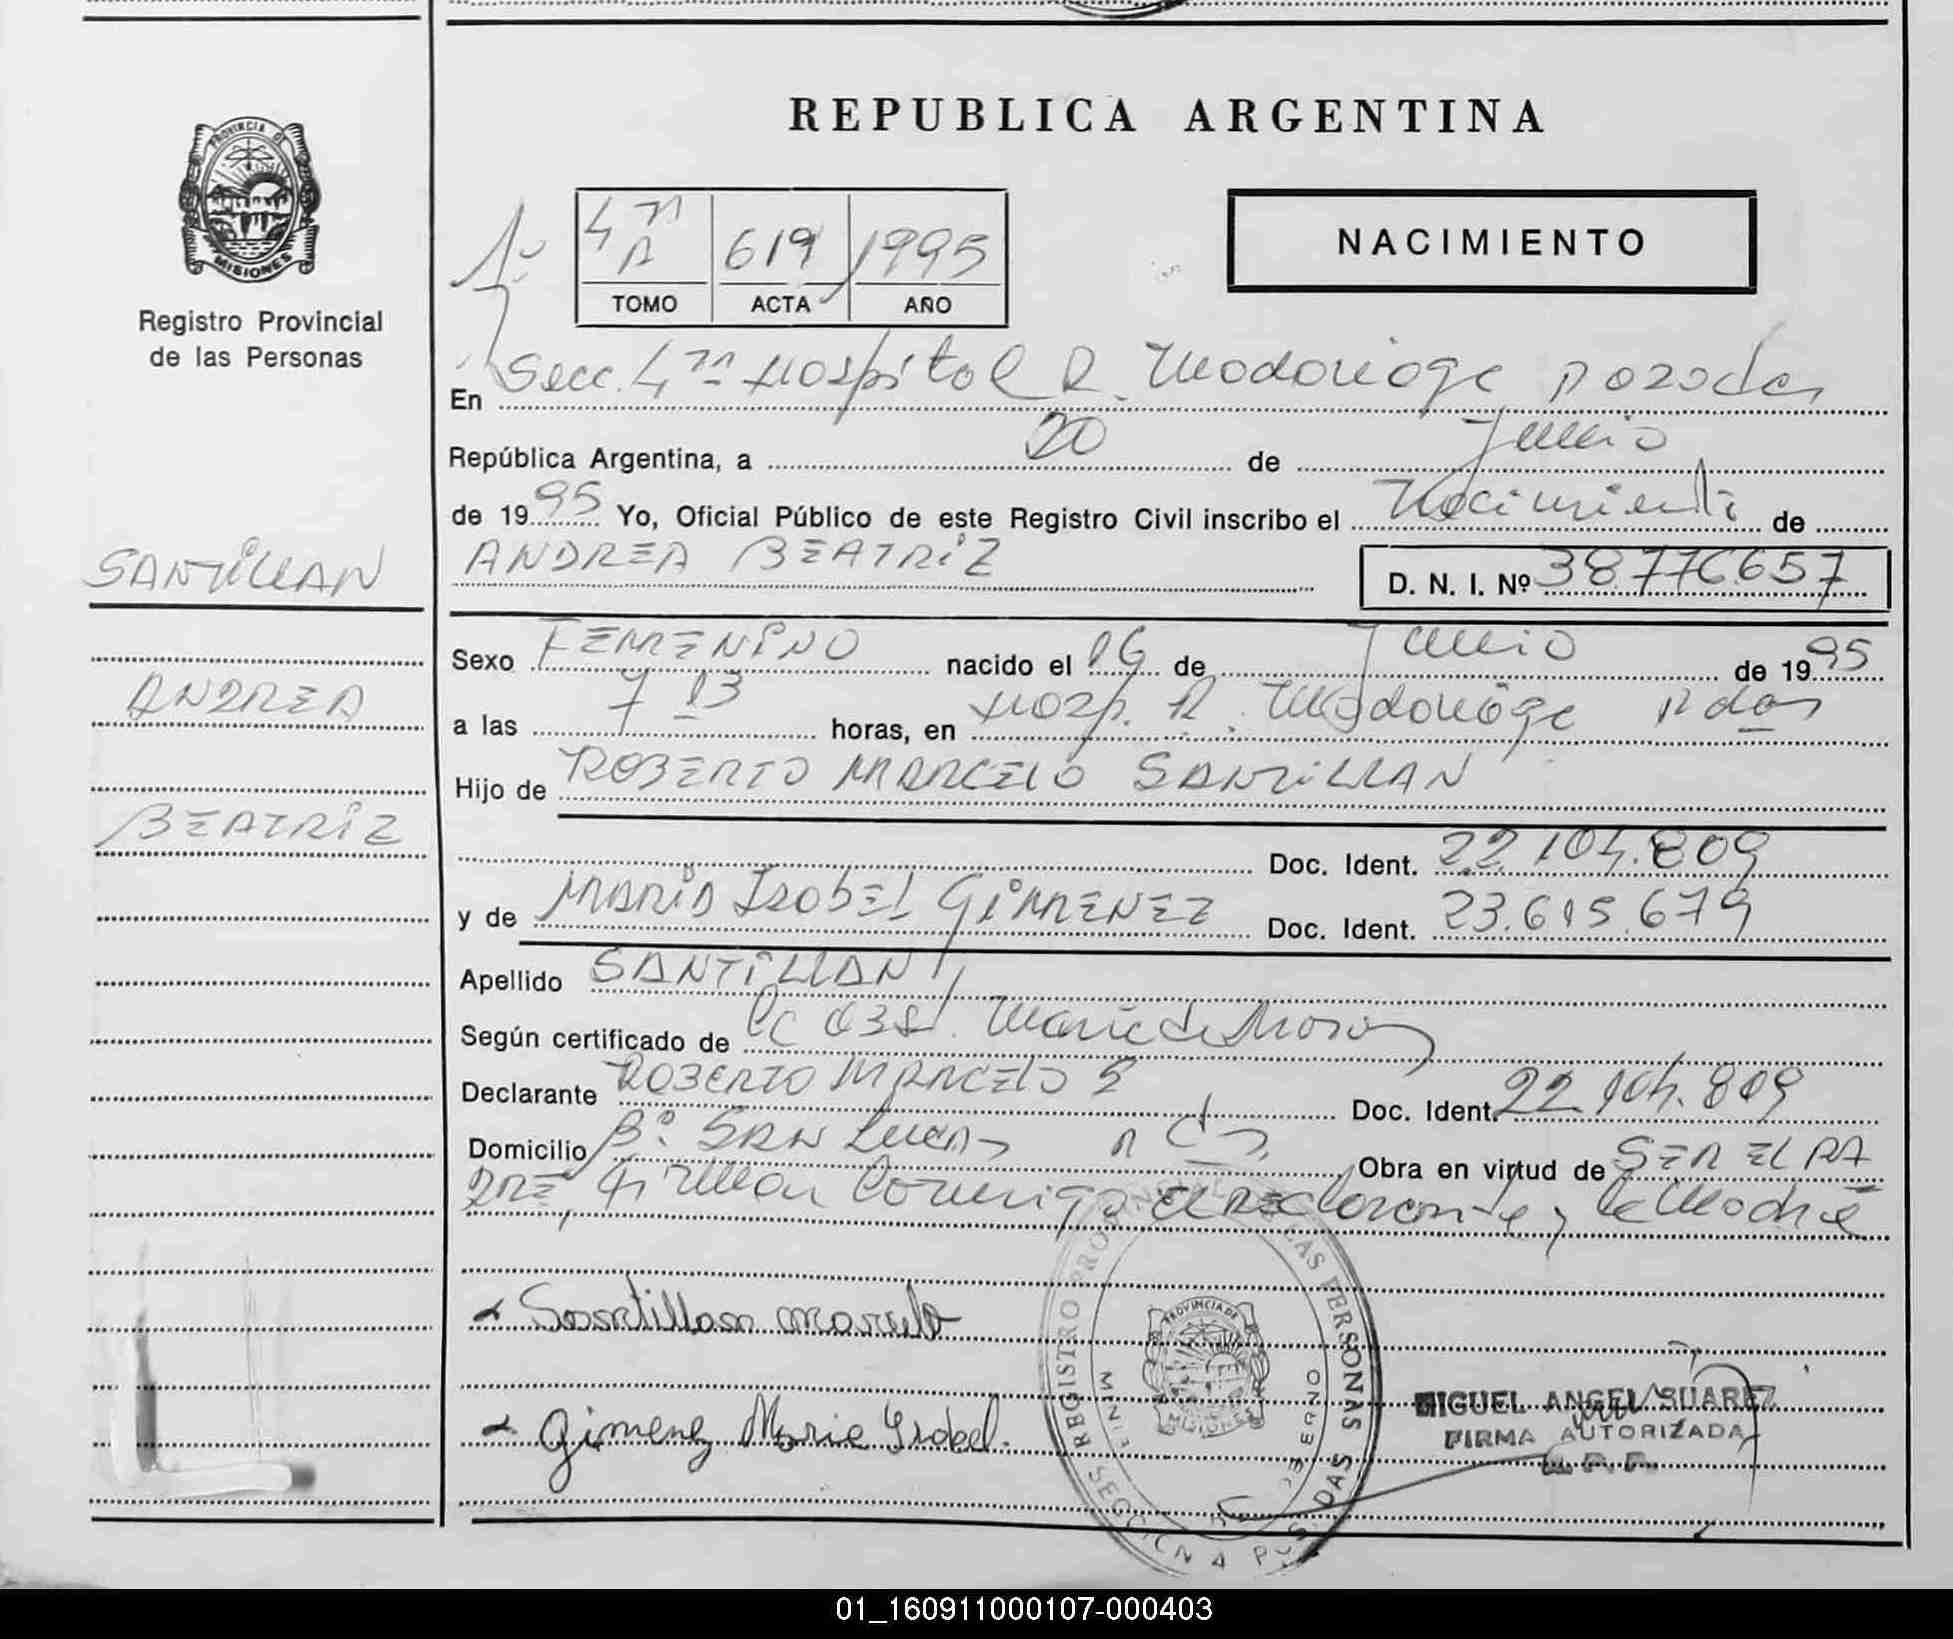 REPUBLICA ARGENTINA
PROVINCIA DE
MISIONES
Registro Provincial
de las Personas
4ta A 619 1995
TOMO ACTA AÑO
NACIMIENTO
En Secc. 4ta Hospital R. Madariaga Posadas
República Argentina, a 20 de Junio
de 1995 Yo, Oficial Público de este Registro Civil inscribo el Nacimiento de
ANDREA BEATRIZ D. N. I. Nº 38.776.657
SANTILLAN
ANDREA
BEATRIZ
Sexo FEMENINO nacido el 16 de Junio de 1995
a las 7 13 horas, en Hosp. R. Madariaga Pdas
Hijo de ROBERTO MARCELO SANTILLAN
Doc. Ident. 22.104.809
y de MARIA ISABEL GIMENEZ Doc. Ident. 23.615.679
Apellido SANTILLAN
Según certificado de la Obst. Maria de
Declarante ROBERTO MARCELO S Doc. Ident. 22.104.809
Domicilio Bº. SAN Lucas Obra en virtud de SER EL PA
DRE, Firman Conmigo EL DEClarante y la Madre
Santillan marcelo
Gimenez Maria Isabel.
REGISTRO PROVINCIAL DE LAS PERSONAS
SECCION 4 POSADAS
PROVINCIA DE
MISIONES
MIGUEL ANGEL SUAREZ
FIRMA AUTORIZADA
R. P. P.
01_160911000107-000403